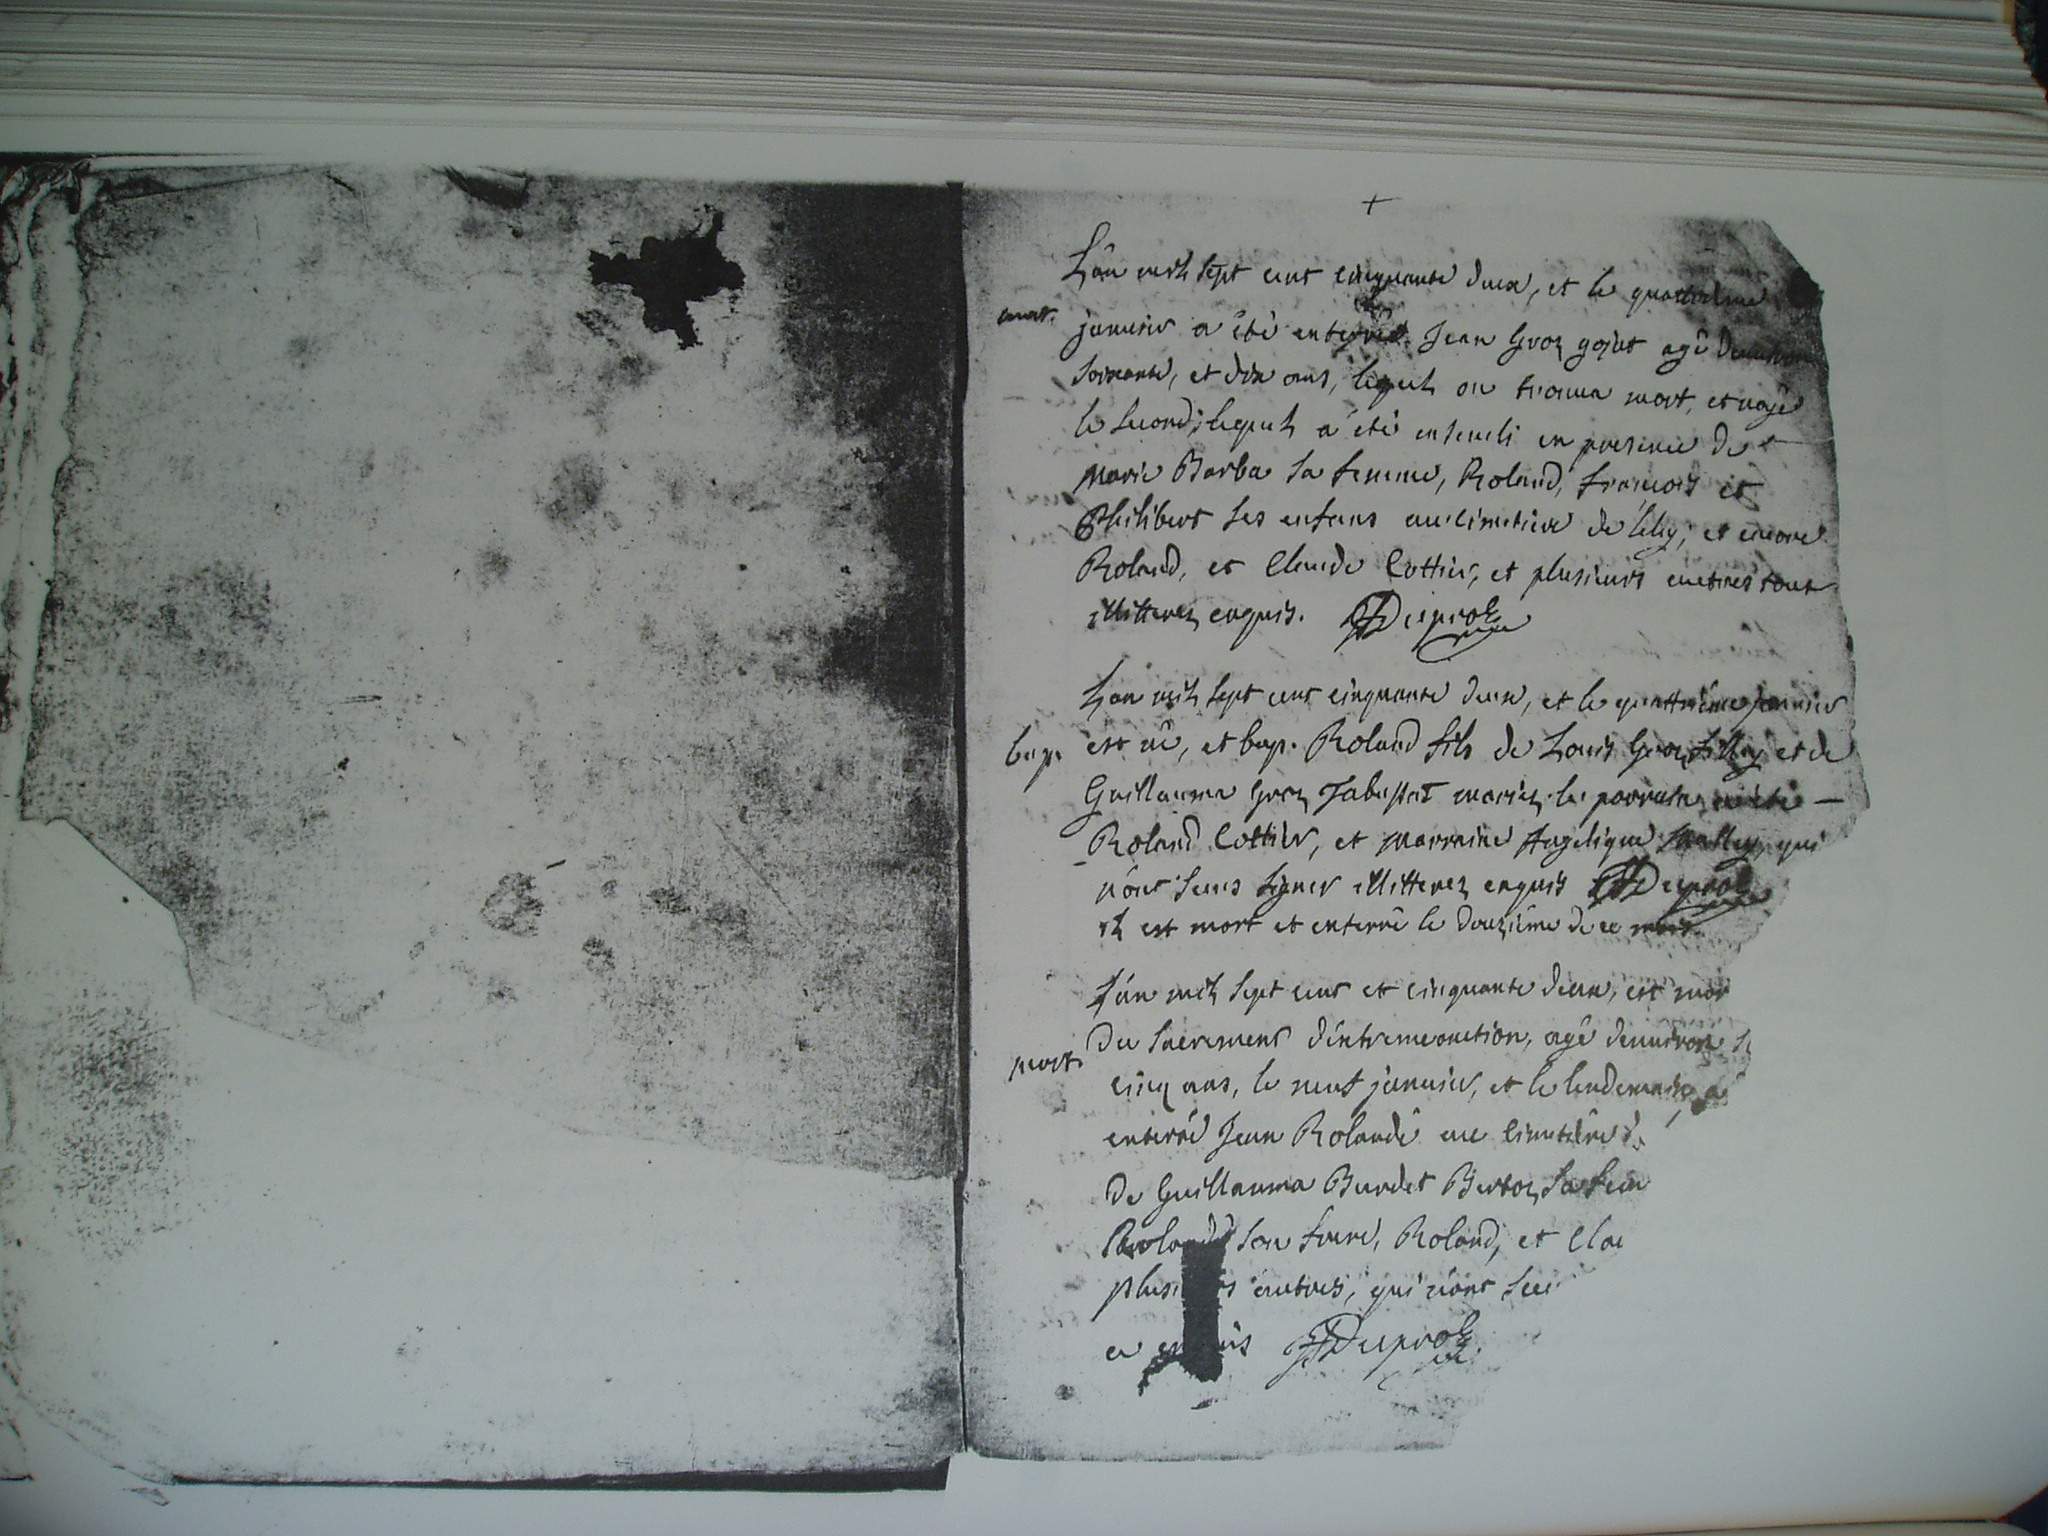 +
L'an mil sept cent cinquante deux, et le quattrième
mort. janvier a été enterré Jean Groz gojat agé denviron
soixante, et dix ans, lequel on trouva mort, et noyé
le second; lequel a été enseveli en presence de
Marie Barba sa femme, Roland, francois et
Philibert ses enfans au cimetiere de ; et encore
Roland, et Claude Cottier, et plusieurs autres tous
illitterez enquis. Duproz
L'an mil sept cent cinquante deux, et le quattrième janvier
bap. est né, et bap. Roland fils de Louis Groz et de
Guillauma Groz mariez. le parrain a été
Roland Cottier, et marraine Angelique qui
n'ont sceus signer illitterez enquis Duproz
il est mort et enterré le douzième de ce mois.
L'an mil sept cent et cinquante deux, est mor
mort. du sacrement d'extremeonction, agé denviron
cinq ans, le neuf janvier, et le lendemain a
enterré Jean Rolande au cimetière
de Guillauma Burdet Bertoz sa fem
son frere, Roland, et Clau
plusi s autres, qui n'ont sceu
e en is Duproz